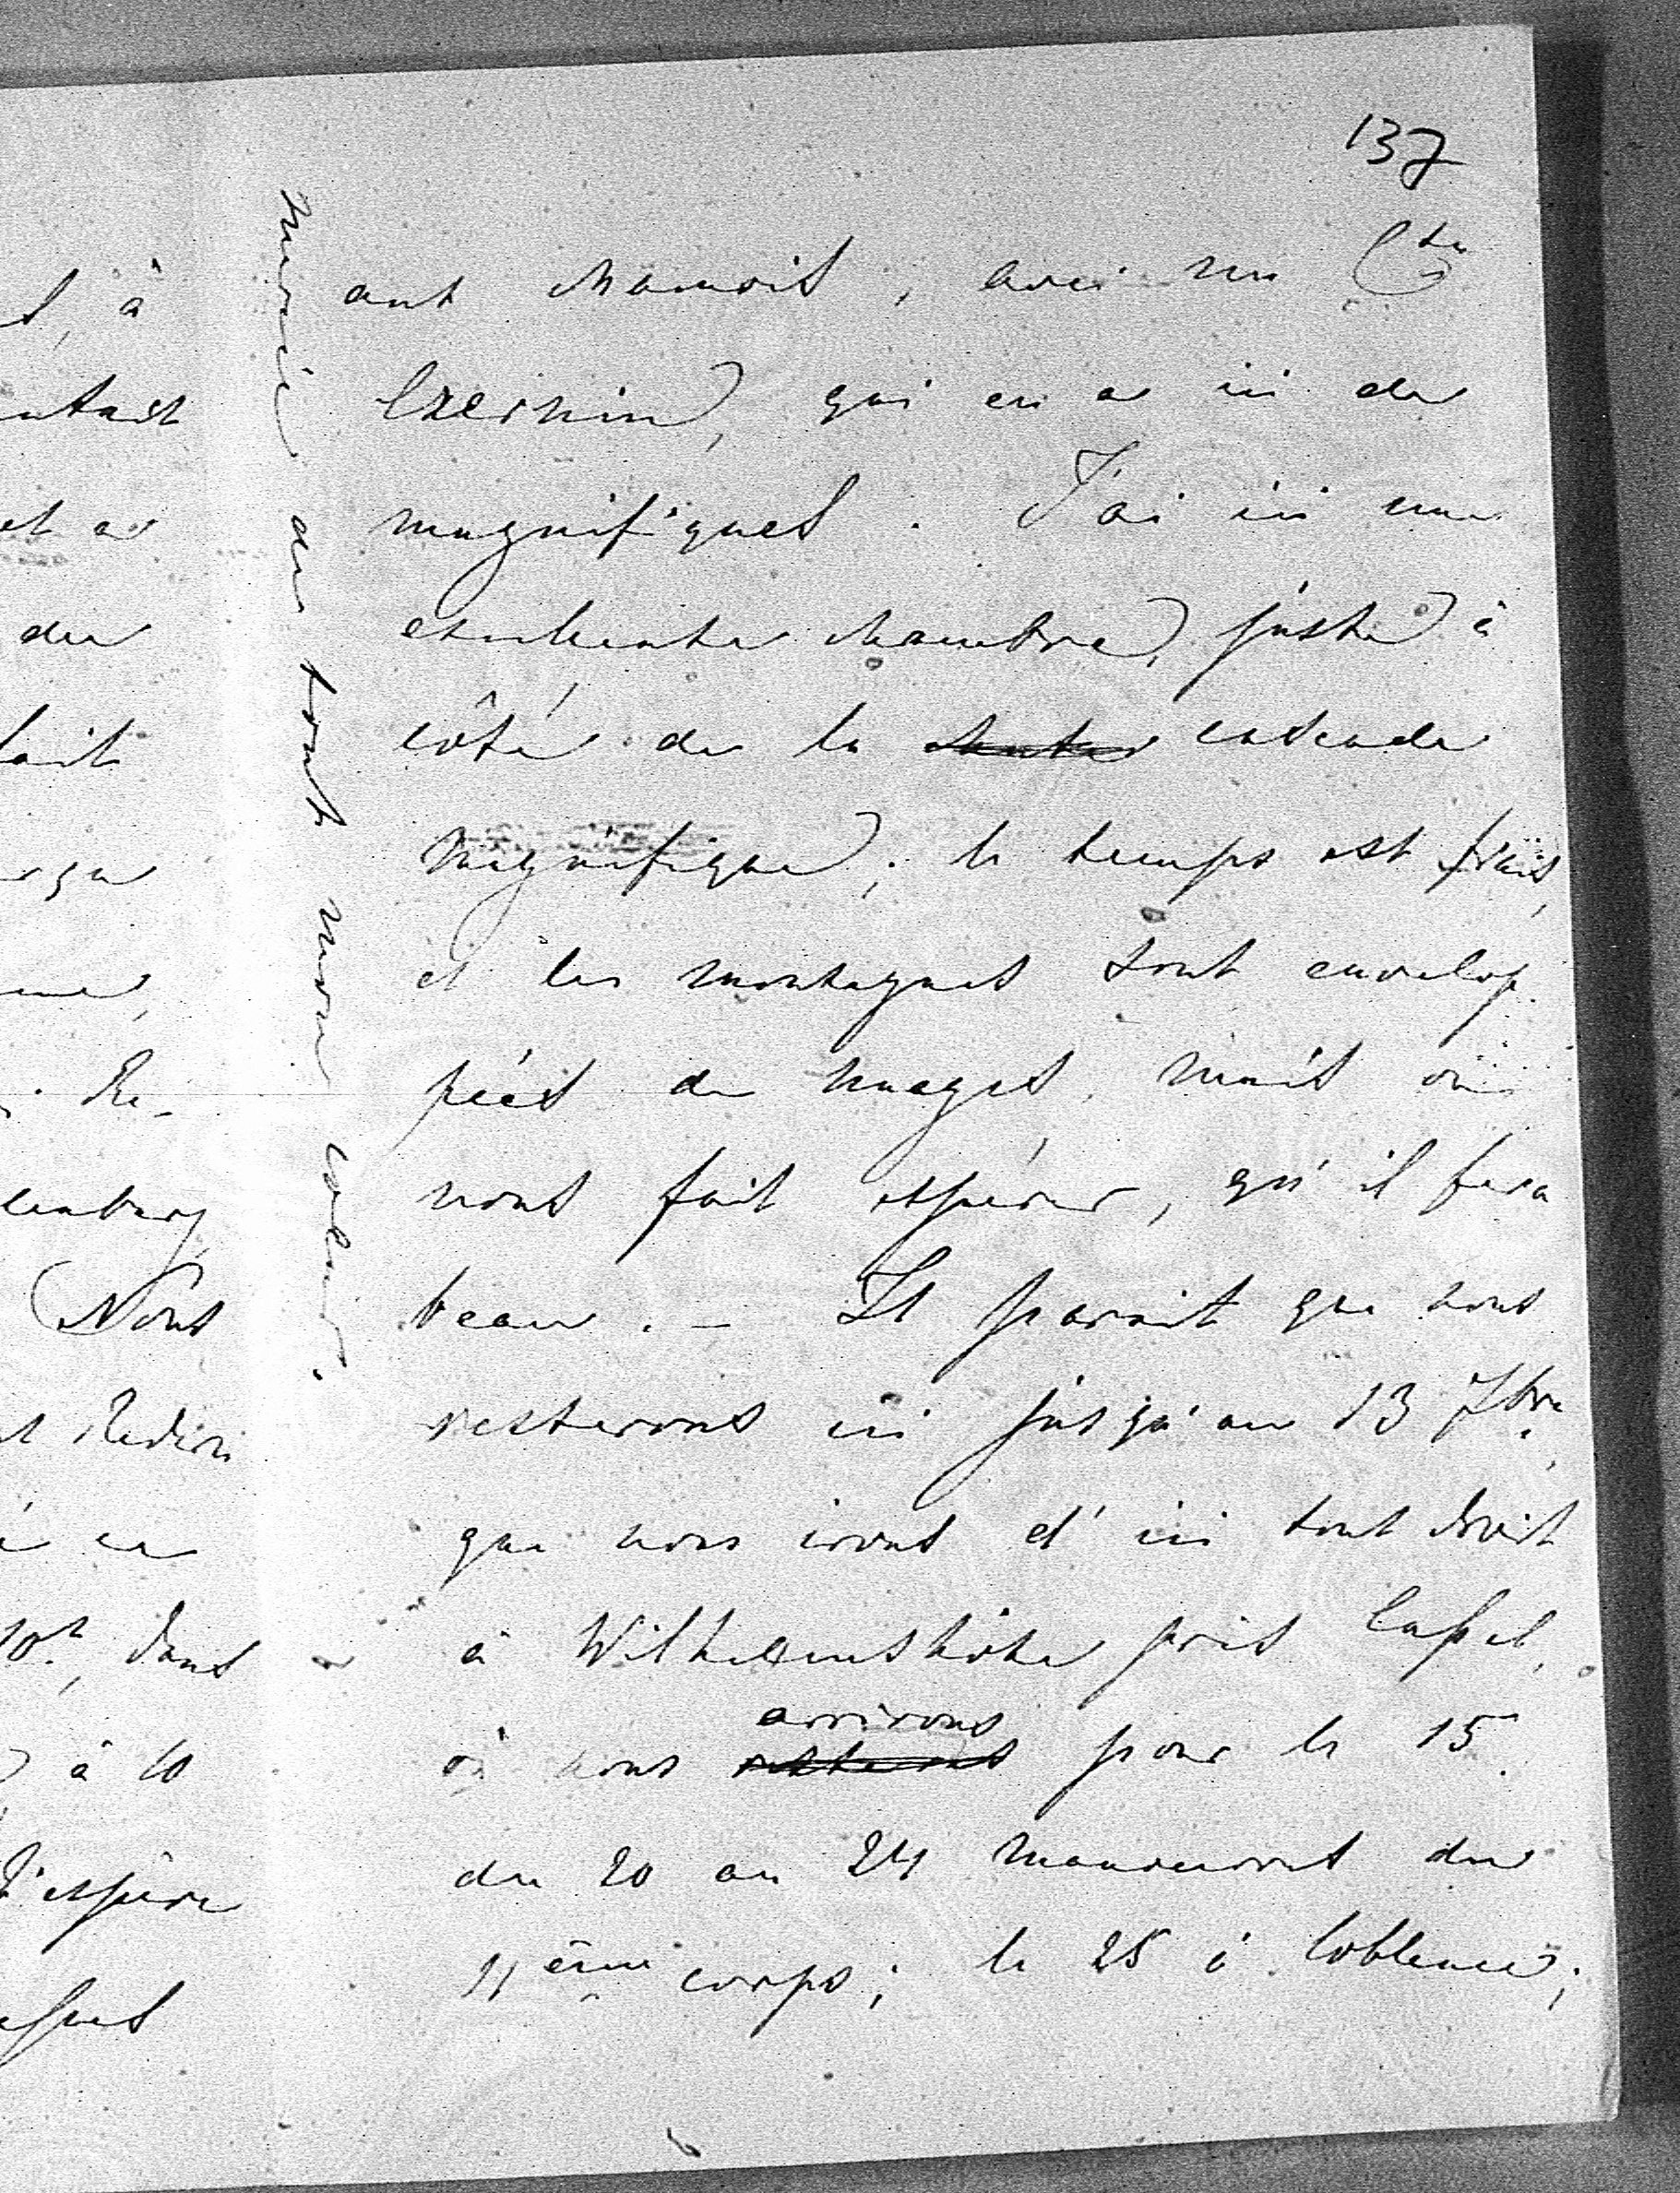 137
aux chamois, avec un Cte
Czernin, qui en a ici de
magnifiques. J'ai ici une
excellente chambre, juste à
côté de la chute cascade
magnifique; le temps est frais,
et les montagnes sont envelop-
pées de nuages, mais on
nous fait espérer, qu'il fera
beau. – Il parait que nous
resterons ici jusqu'au 13 7bre,
que nous irons d'ici tout droit
à Wilhelmshöhe près Cassel,
où nous arrivons pour le 15.
du 20 au 24 manoeuvres du
11ème corps; le 25 à Coblence;
merci de tout mon coeur.
l, à
et a
du
Re-
Nous
dans
à 10
J'espère